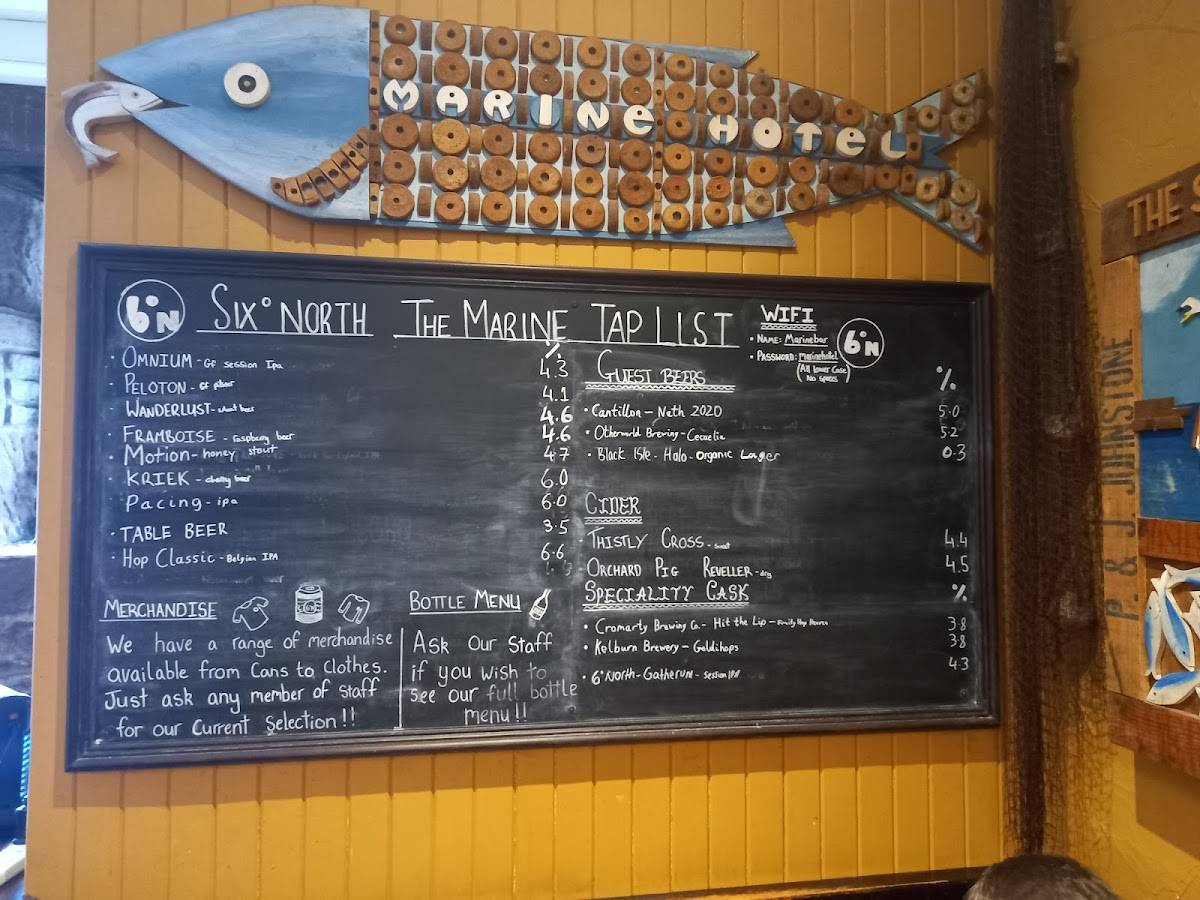 MARINE HOTEL
6°N SIX° NORTH THE MARINE TAP LIST
WIFI
• NAME: Marinebar
• PASSWORD: Marinehotel
(All lower Case
No spaces)
6°N
%
• OMNIUM - GF session Ipa 4.3
• PELOTON - GF pilsner 4.1
• WANDERLUST - wheat beer 4.6
• FRAMBOISE - raspberry beer 4.6
• Motion - honey stout 4.7
• KRIEK - cherry beer 6.0
• Pacing - ipa 6.0
• TABLE BEER 3.5
• Hop Classic - Belgian IPA 6.6
GUEST BEERS %
• Cantillon - Nath 2020 5.0
• Otherworld Brewing - Cecaelia 5.2
• Black Isle - Halo - Organic Lager 0.3
CIDER
• THISTLY CROSS - sweet 4.4
• ORCHARD PIG REVELLER - dry 4.5
SPECIALITY CASK %
• Cromarty Brewing Co. - Hit the Lip - 3.8
• Kelburn Brewery - Goldihops 3.8
• 6° NORTH - Gatherun - SESSION IPA 4.3
MERCHANDISE
We have a range of merchandise
available from Cans to Clothes.
Just ask any member of staff
for our Current Selection!!
BOTTLE MENU
Ask Our Staff
if you wish to
see our full bottle
menu!!
THE
P. & J. JOHNSTONE